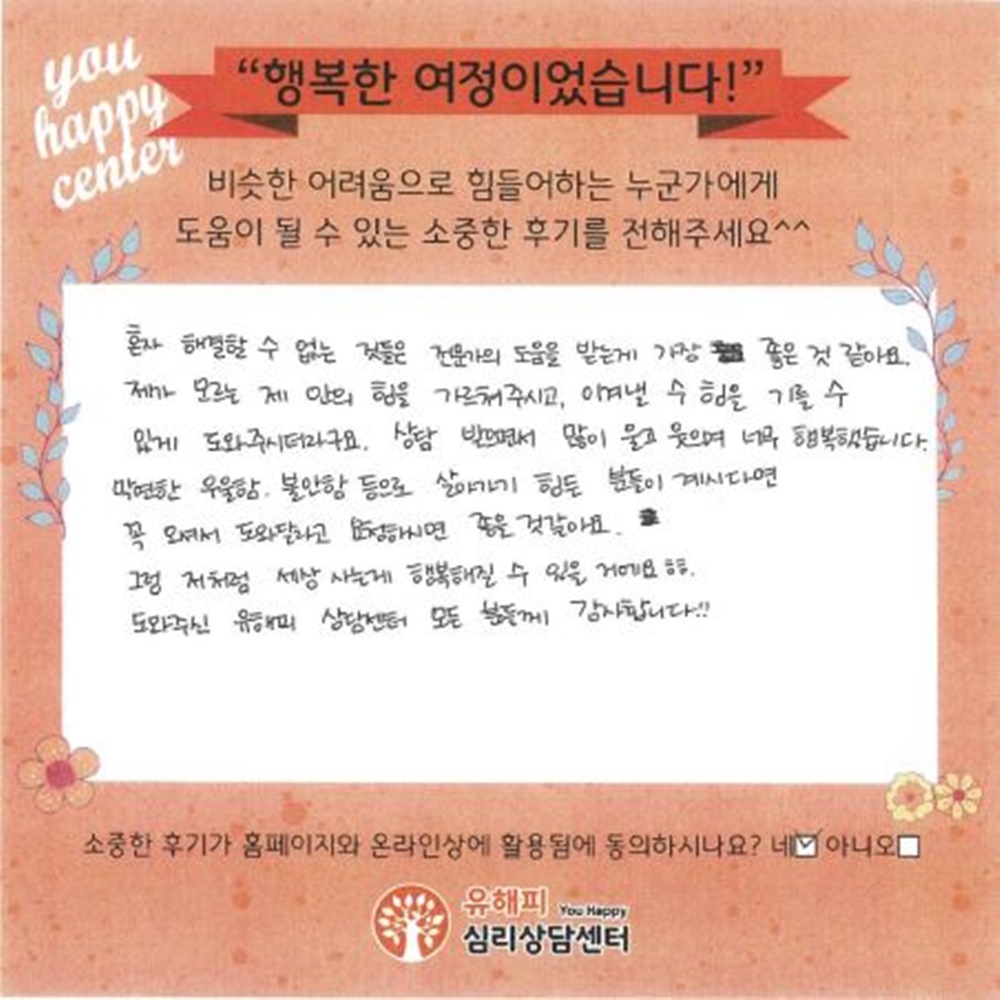 you
happy
center
“행복한 여정이었습니다!”
비슷한 어려움으로 힘들어하는 누군가에게
도움이 될 수 있는 소중한 후기를 전해주세요^^
혼자 해결할 수 없는 것들은 전문가의 도움을 받는게 가장 좋은 것 같아요.
제가 모르는 제 안의 힘을 가르쳐주시고, 이겨낼 수 힘을 기를 수
있게 도와주시더라구요. 상담 받으면서 많이 울고 웃으며 너무 행복했습니다.
막연한 우울함. 불안함 등으로 살아가기 힘든 분들이 계시다면
꼭 오셔서 도와달라고 요청하시면 좋을 것같아요.
그럼 저처럼 세상 사는게 행복해질 수 있을 거예요 ㅎㅎ.
도와주신 유해피 상담센터 모든 분들께 감사합니다!!
소중한 후기가 홈페이지와 온라인상에 활용됨에 동의하시나요? 네☑ 아니오☐
유해피 You Happy
심리상담센터